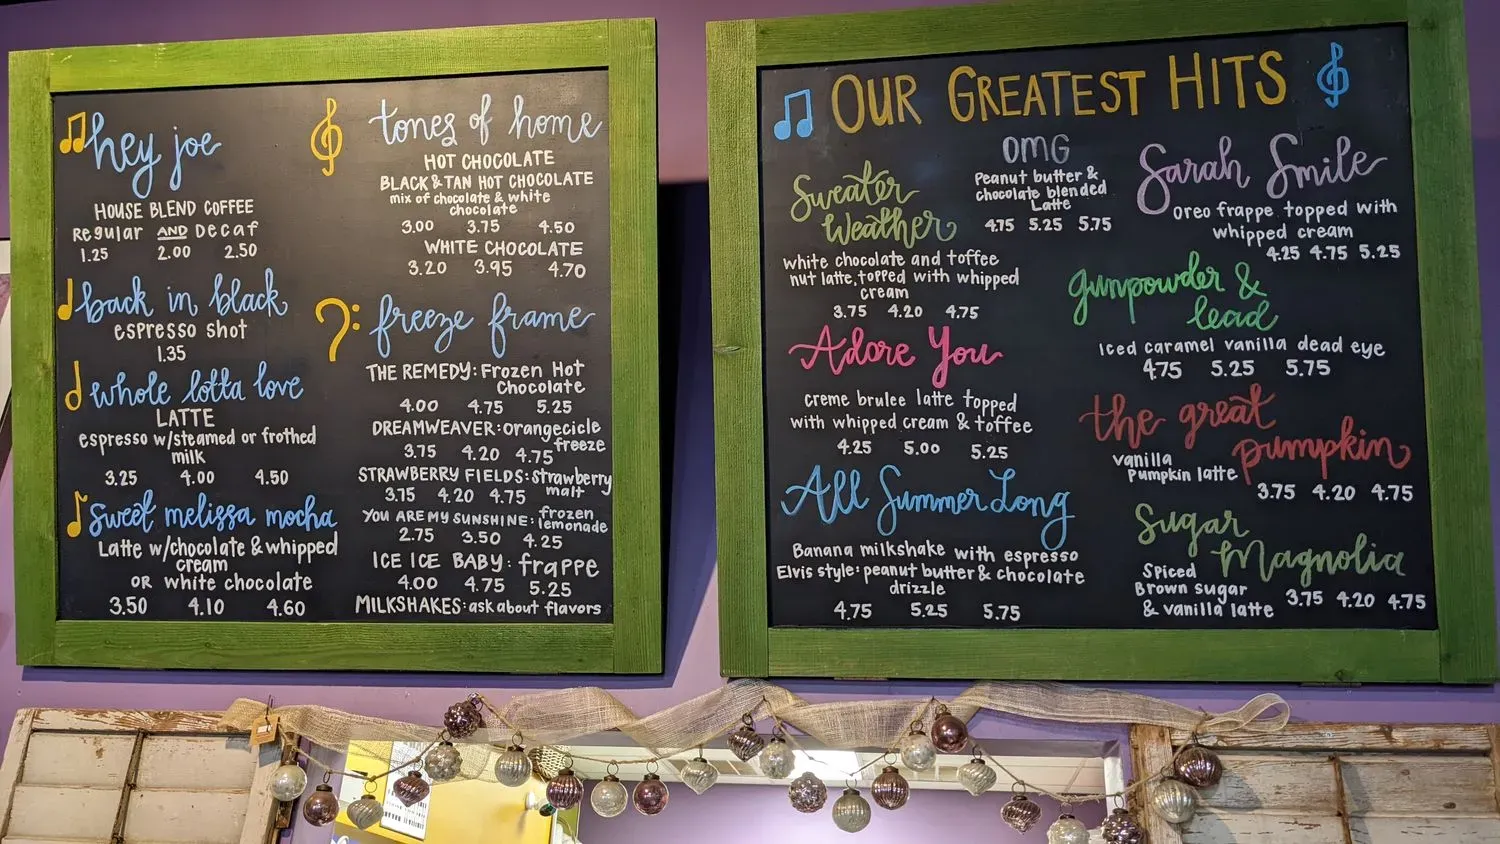 hey joe
HOUSE BLEND COFFEE
Regular AND Decaf
1.25 2.00 2.50
back in black
espresso shot
1.35
whole lotta love
LATTE
espresso w/steamed or frothed
milk
3.25 4.00 4.50
sweet melissa mocha
Latte w/chocolate & whipped
cream
OR white chocolate
3.50 4.10 4.60
tones of home
HOT CHOCOLATE
BLACK & TAN HOT CHOCOLATE
mix of chocolate & white
chocolate
3.00 3.75 4.50
WHITE CHOCOLATE
3.20 3.95 4.70
freeze frame
THE REMEDY: Frozen Hot
Chocolate
4.00 4.75 5.25
DREAMWEAVER: orangecicle
freeze
3.75 4.20 4.75
STRAWBERRY FIELDS: strawberry
malt
3.75 4.20 4.75
YOU ARE MY SUNSHINE: frozen
lemonade
2.75 3.50 4.25
ICE ICE BABY: frappe
4.00 4.75 5.25
MILKSHAKES: ask about flavors
OUR GREATEST HITS
Sweater
Weather
white chocolate and toffee
nut latte, topped with whipped
cream
3.75 4.20 4.75
OMG
Peanut butter &
chocolate blended
Latte
4.75 5.25 5.75
Sarah Smile
Oreo frappe topped with
whipped cream
4.25 4.75 5.25
Adore You
creme brulee latte topped
with whipped cream & toffee
4.25 5.00 5.25
gunpowder &
lead
Iced caramel vanilla dead eye
4.75 5.25 5.75
the great
pumpkin
vanilla
Pumpkin latte
3.75 4.20 4.75
All Summer Long
Banana milkshake with espresso
Elvis style: peanut butter & chocolate
drizzle
4.75 5.25 5.75
Sugar
Magnolia
Spiced
Brown sugar
& vanilla latte
3.75 4.20 4.75